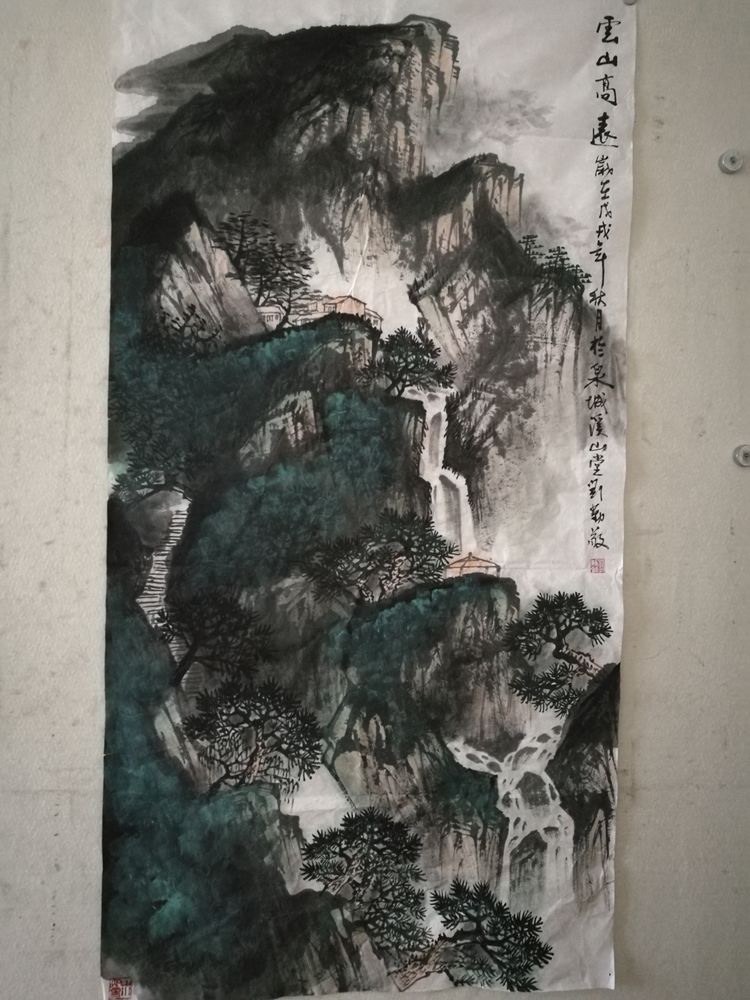 雲山高遠歲在戊戌年秋月於泉城溪山堂劉勤敬